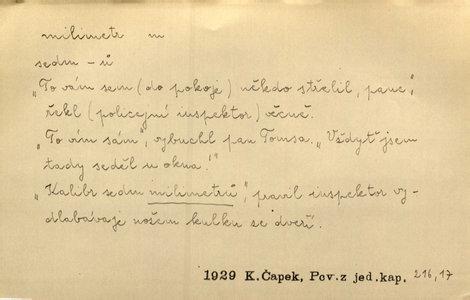 milimetr m
sedm – ů
„To vám sem (do pokoje) někdo střelil, pane,"
řekl (policejní inspektor) věcně.
„To vím sám", vybuchl pan Tomsa. „Vždyť jsem
tady seděl u okna!"
„Kalibr sedm milimetrů", pravil inspektor vy-
dlabávaje nožem kulku ze dveří.
1929 K.Čapek, Pov.z jed.kap. 216,17